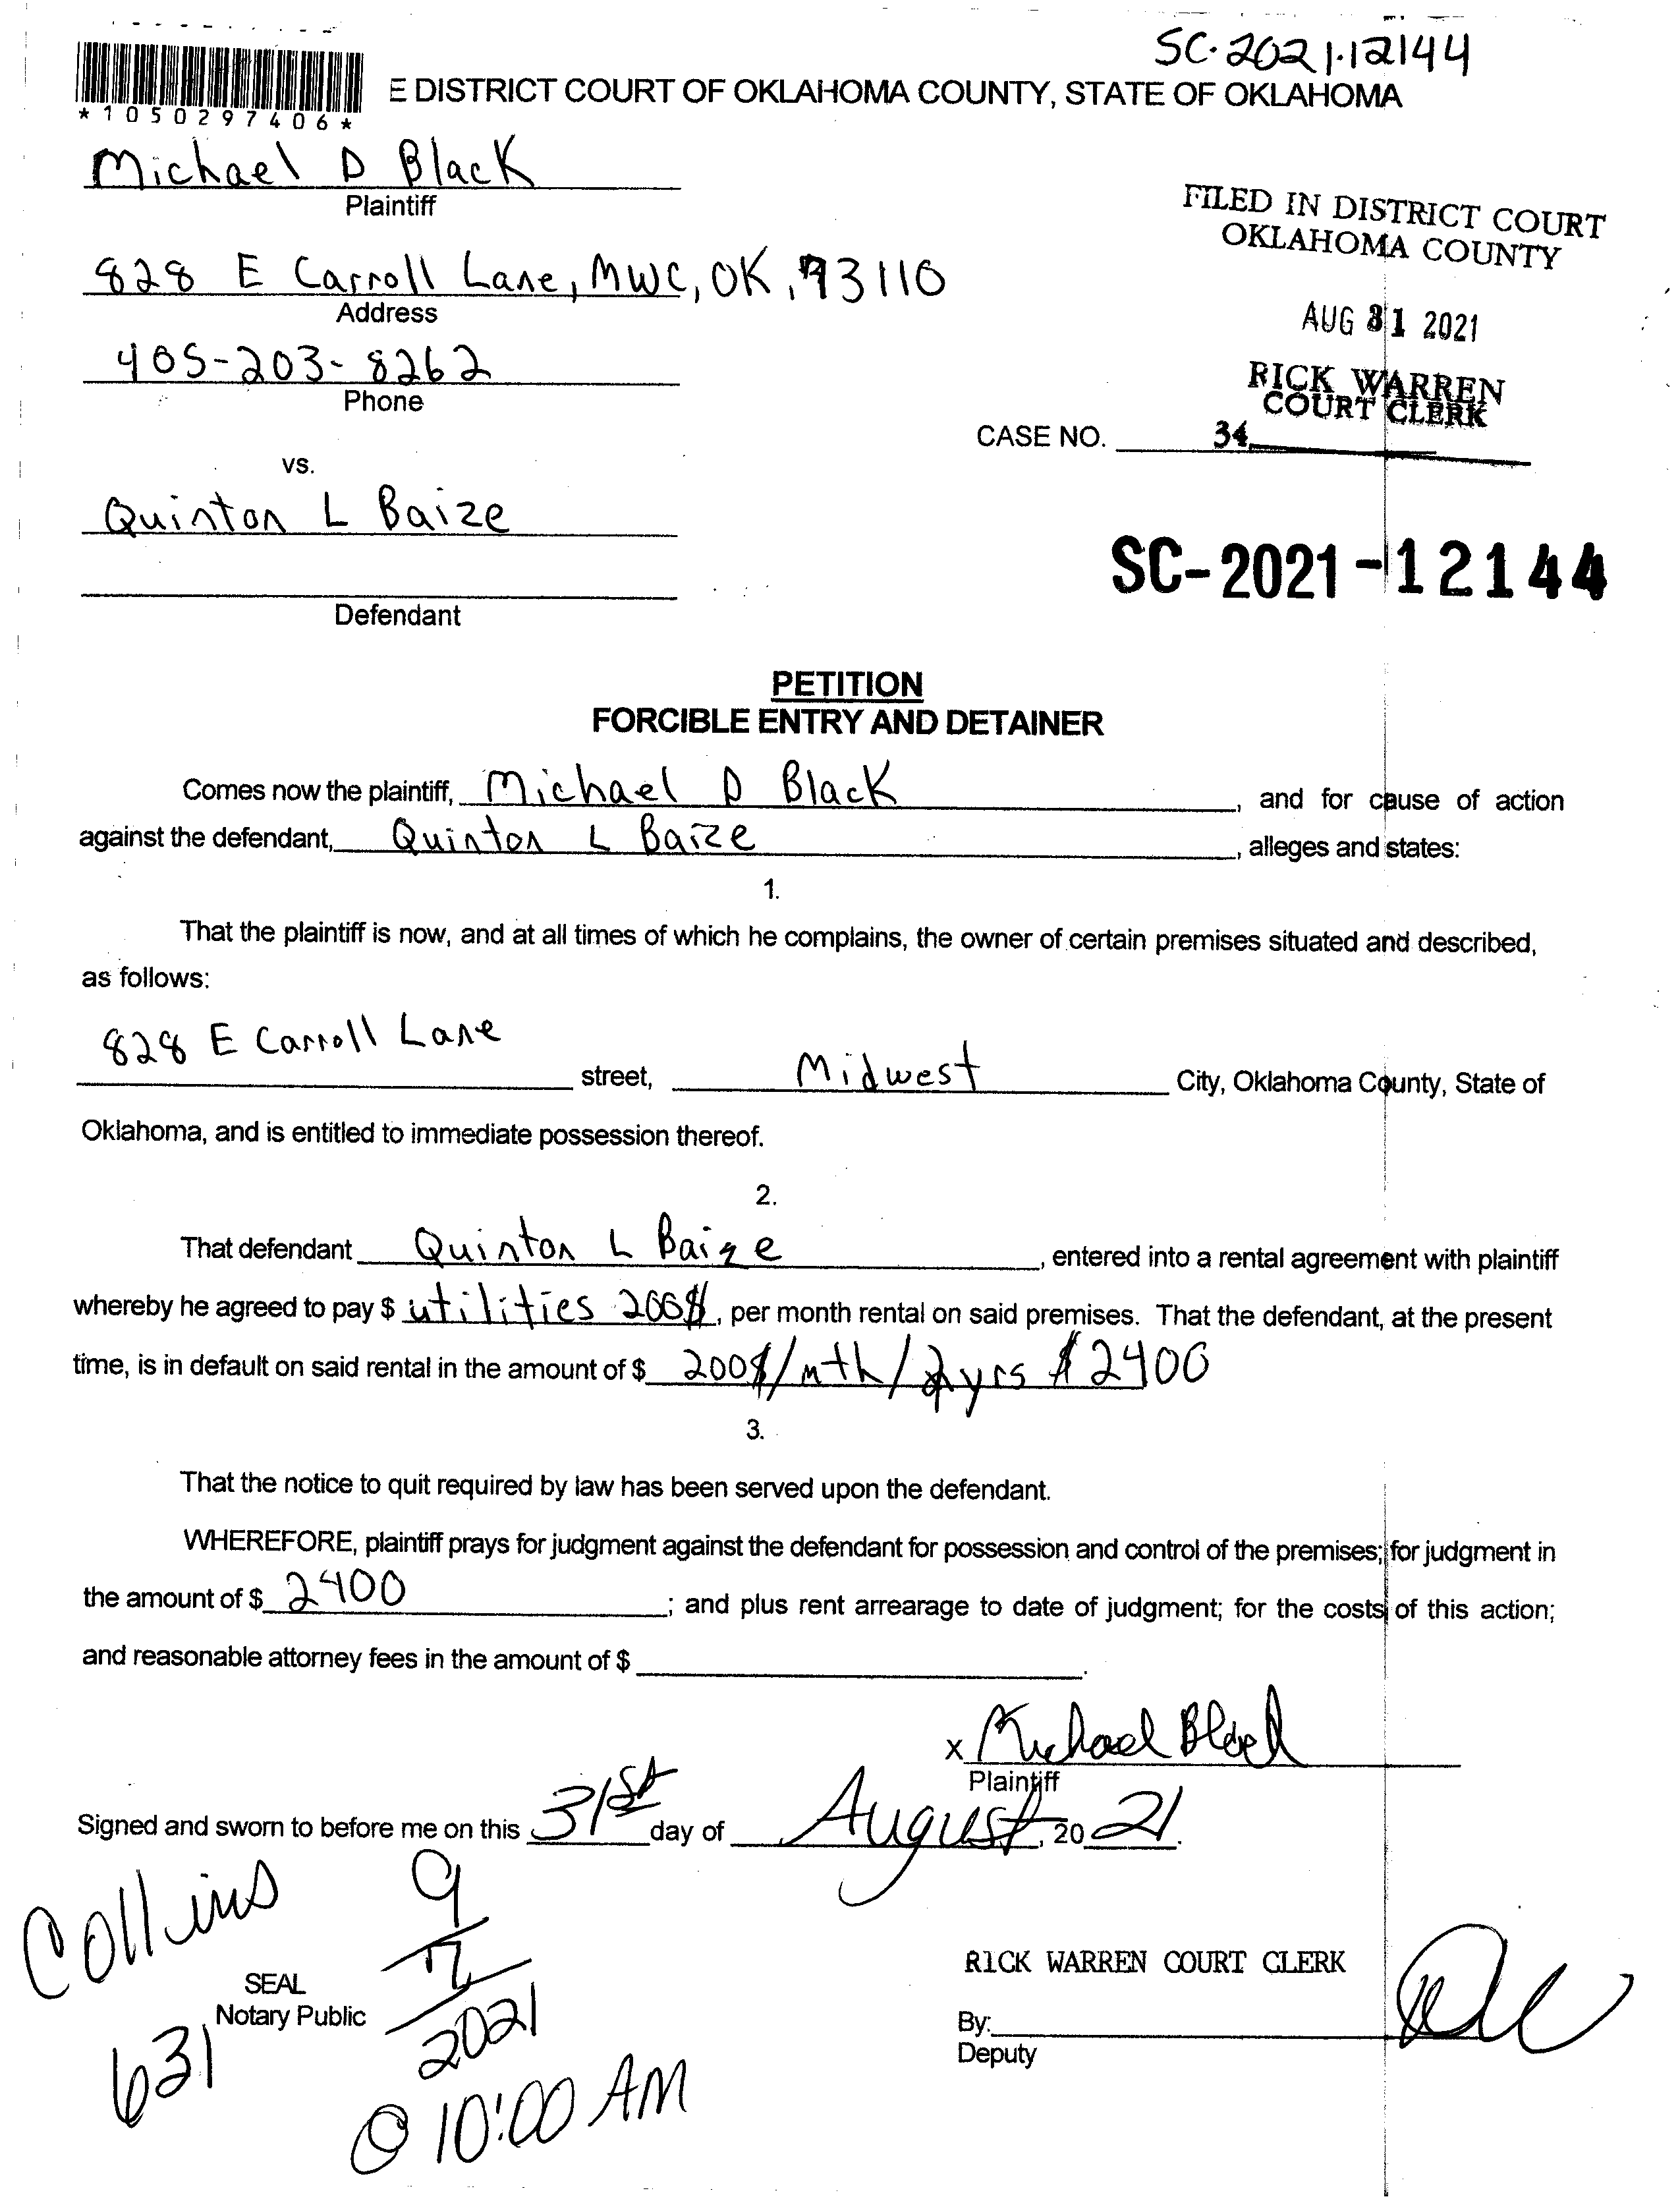 SC-2021-12144
*1050297406*
E DISTRICT COURT OF OKLAHOMA COUNTY, STATE OF OKLAHOMA
Michael D Black
Plaintiff
FILED IN DISTRICT COURT
OKLAHOMA COUNTY
828 E Carroll Lane, MWC, OK, 73110
Address
AUG 31 2021
405-203-8262
Phone
RICK WARREN
COURT CLERK
CASE NO. 34
vs.
Quinton L Baize
SC-2021-12144
Defendant
PETITION
FORCIBLE ENTRY AND DETAINER
Comes now the plaintiff, Michael D Black, and for cause of action
against the defendant, Quinton L Baize, alleges and states:
1.
That the plaintiff is now, and at all times of which he complains, the owner of certain premises situated and described,
as follows:
828 E Carroll Lane
street, Midwest City, Oklahoma County, State of
Oklahoma, and is entitled to immediate possession thereof.
2.
That defendant Quinton L Baize, entered into a rental agreement with plaintiff
whereby he agreed to pay $ utilities 200$, per month rental on said premises. That the defendant, at the present
time, is in default on said rental in the amount of $ 200$/mth/2yrs $2400
3.
That the notice to quit required by law has been served upon the defendant.
WHEREFORE, plaintiff prays for judgment against the defendant for possession and control of the premises; for judgment in
the amount of $ 2400; and plus rent arrearage to date of judgment; for the costs of this action;
and reasonable attorney fees in the amount of $ .
x Michael Black
Plaintiff
Signed and sworn to before me on this 31st day of August, 2021.
Collins
9/17/2021
SEAL
Notary Public
631
@ 10:00 AM
RICK WARREN COURT CLERK
By:
Deputy